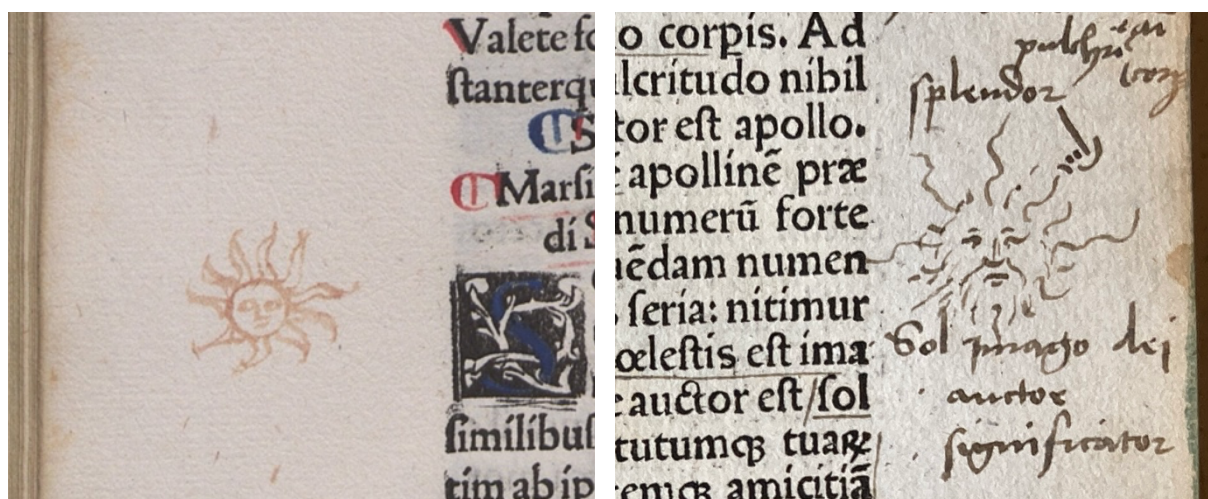 Valete fo
ſtanterqu
S
Marſi
di S
S
ſimilibuſ
tim ab ip
o corpis. Ad
lcritudo nibil
tor eſt apollo.
apollinē præ
numerū forte
uēdam numen
ſeria: nitimur
œleſtis eſt ima
auctor eſt/ſol
tutumqꝫ tuaꝝ
emqꝫ amicitiā
pulchri
splendor
Sol imago dei
auctor
significator